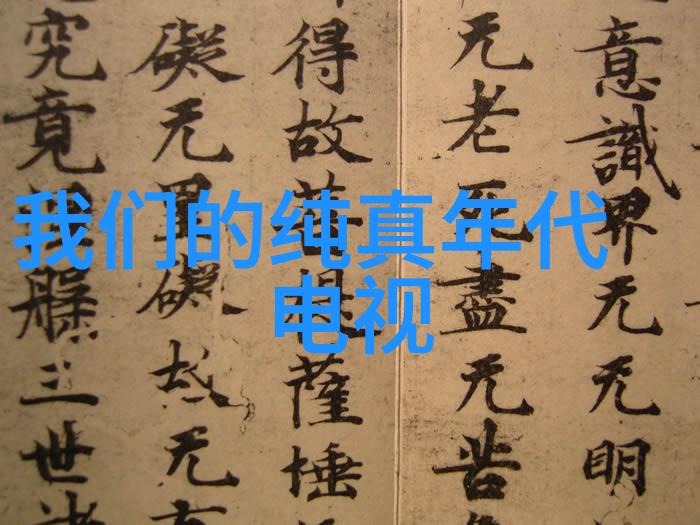 我们的纯真年代
电视
意識界无无明
无老死盡无苦
得故菩提薩埵
礙无罣礙故无
究竟涅槃三世諸